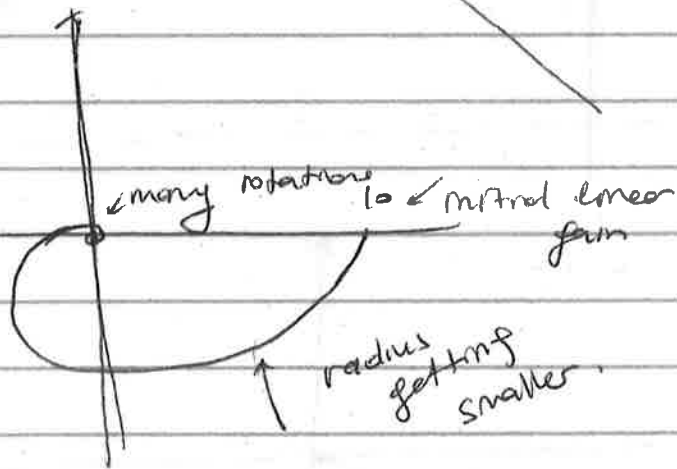 many rotations 10 initial linear
gain
radius
getting
smaller.